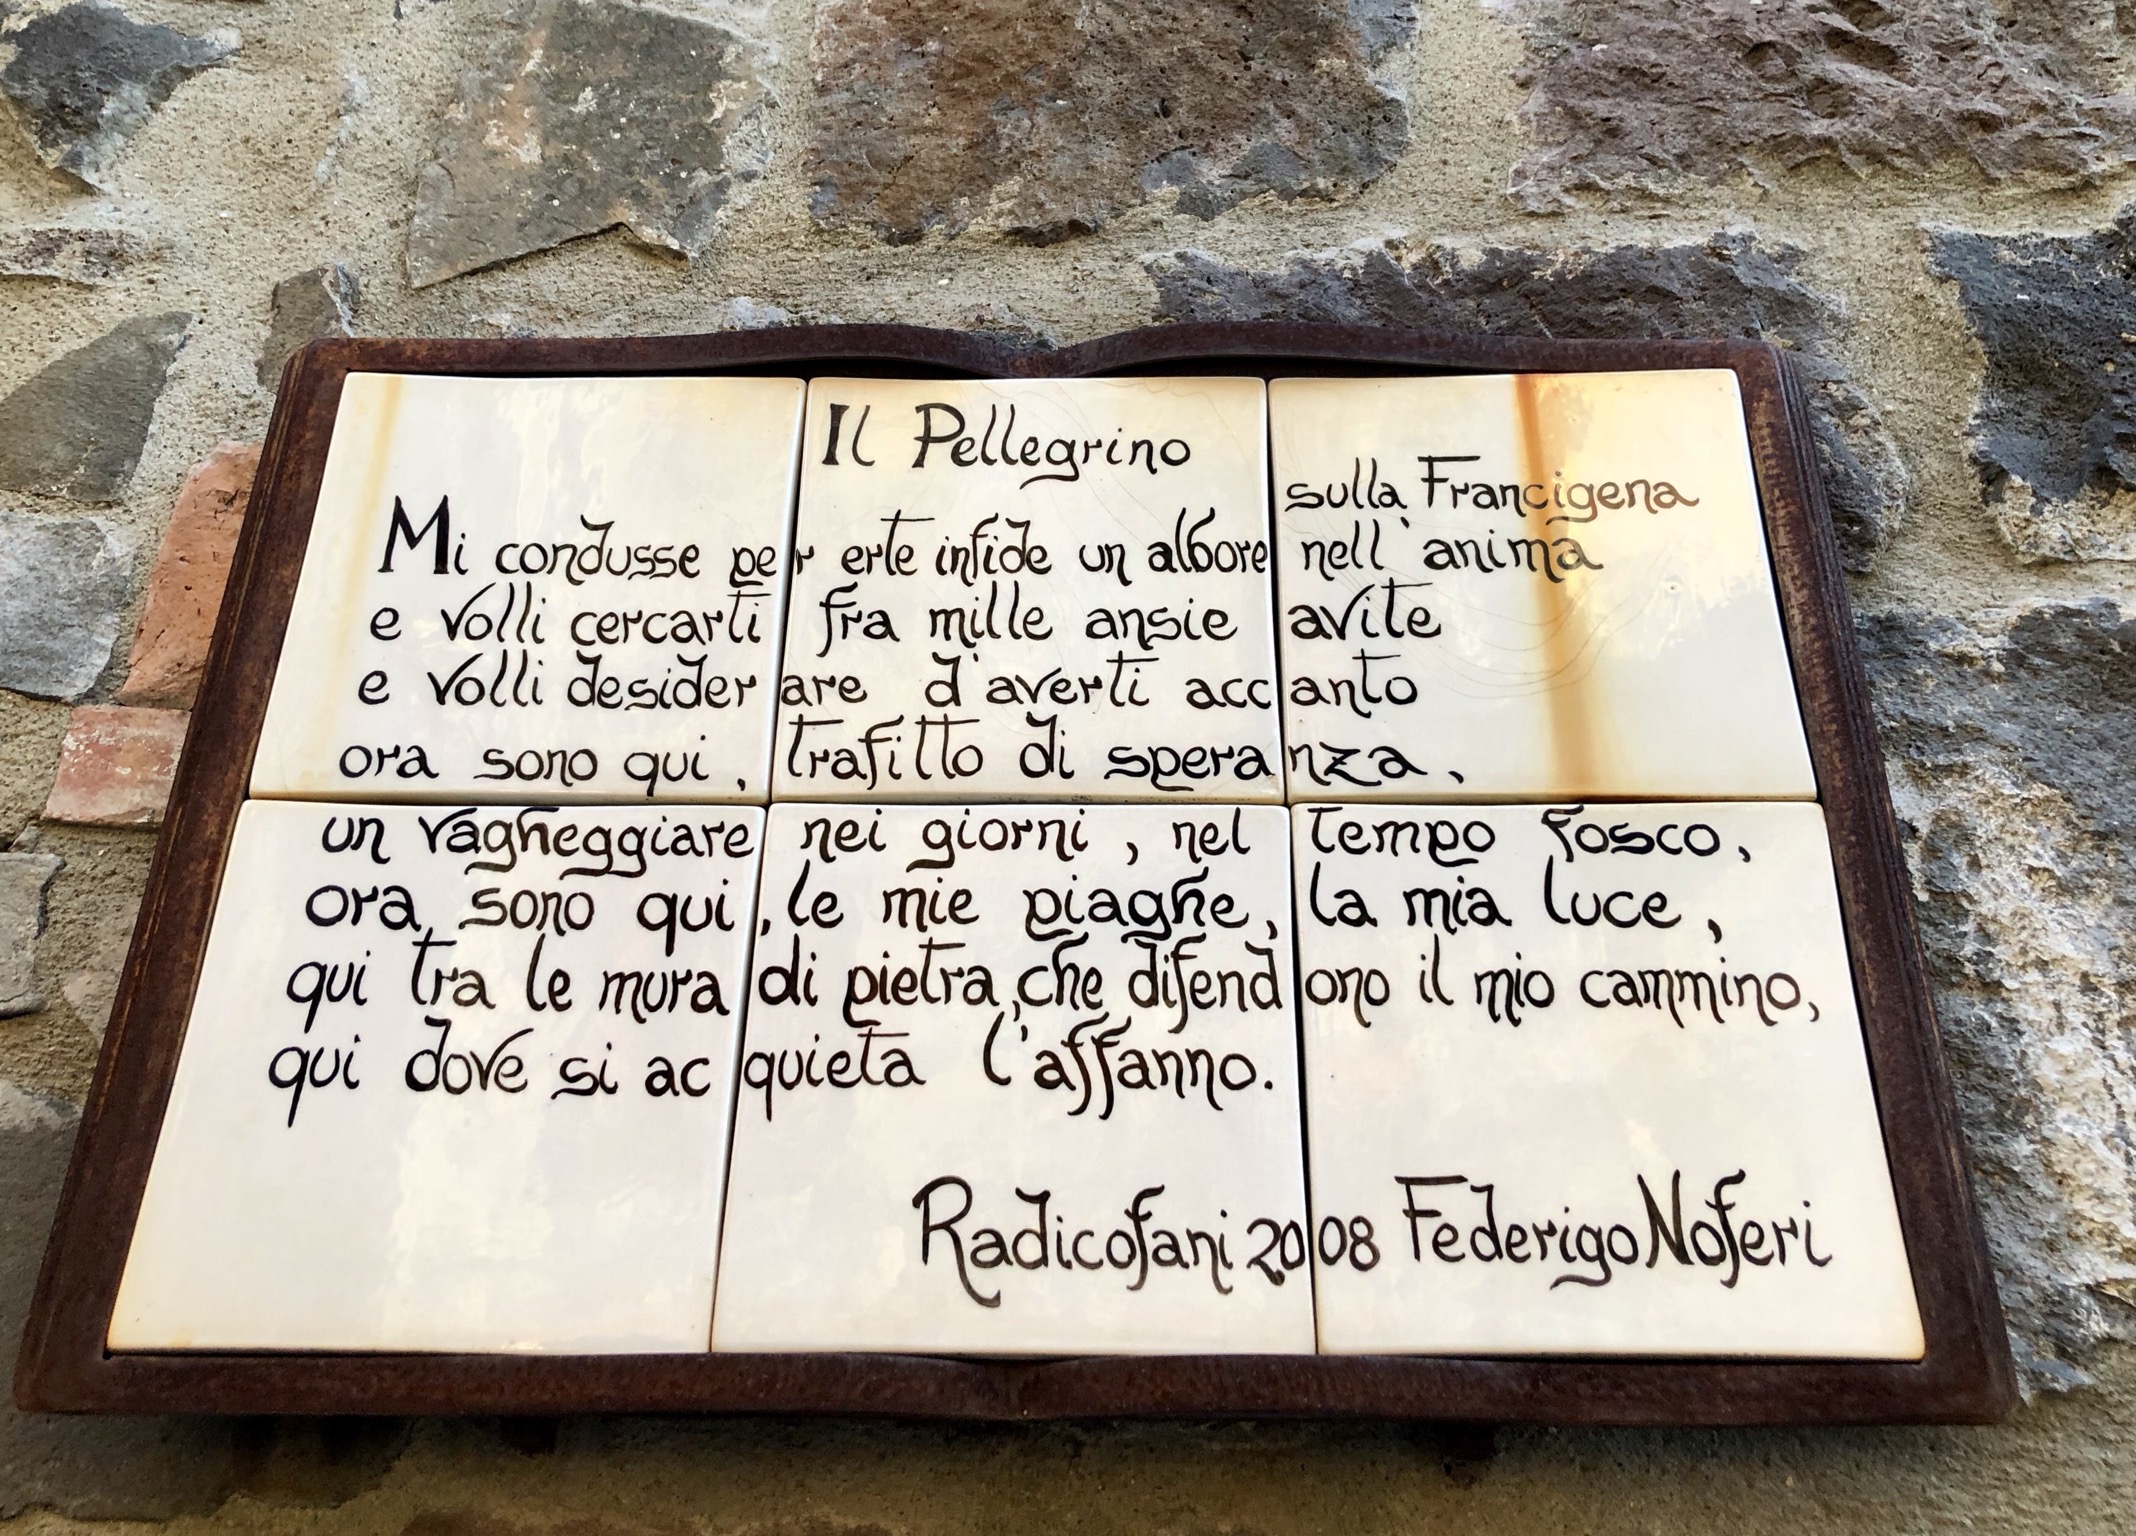 Il Pellegrino
sulla Francigena
Mi condusse per erte infide un albore nell'anima
e volli cercarti fra mille ansie avite
e volli desiderare d'averti accanto
ora sono qui, trafitto di speranza,
un vagheggiare nei giorni, nel tempo fosco,
ora sono qui, le mie piaghe, la mia luce,
qui tra le mura di pietra, che difendono il mio cammino,
qui dove si acquieta l'affanno.
Radicofani 2008 Federigo Noferi